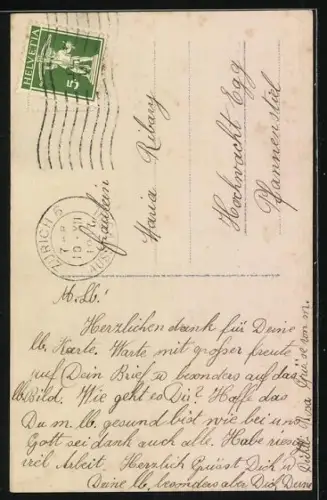 HELVETIA
5
ZÜRICH 5
10 VII
AUS
Fräulein
Maria Ribary
Hochwacht Egg
Pfannenstiel
M. lb!
Herzlichen dank für Deine
lb. Karte. Warte mit großer freute
auf Dein Brief u besonders auf das
lb. Bild. Wie geht es Dir? Hoffe das
Du m. lb. gesund bist wie bei uns
Gott sei dank auch alle. Habe riesig
viel Arbeit. Herzlich Grüsst Dich u
Deine lb. besonders aber Dich Dein
Grüsse von m.